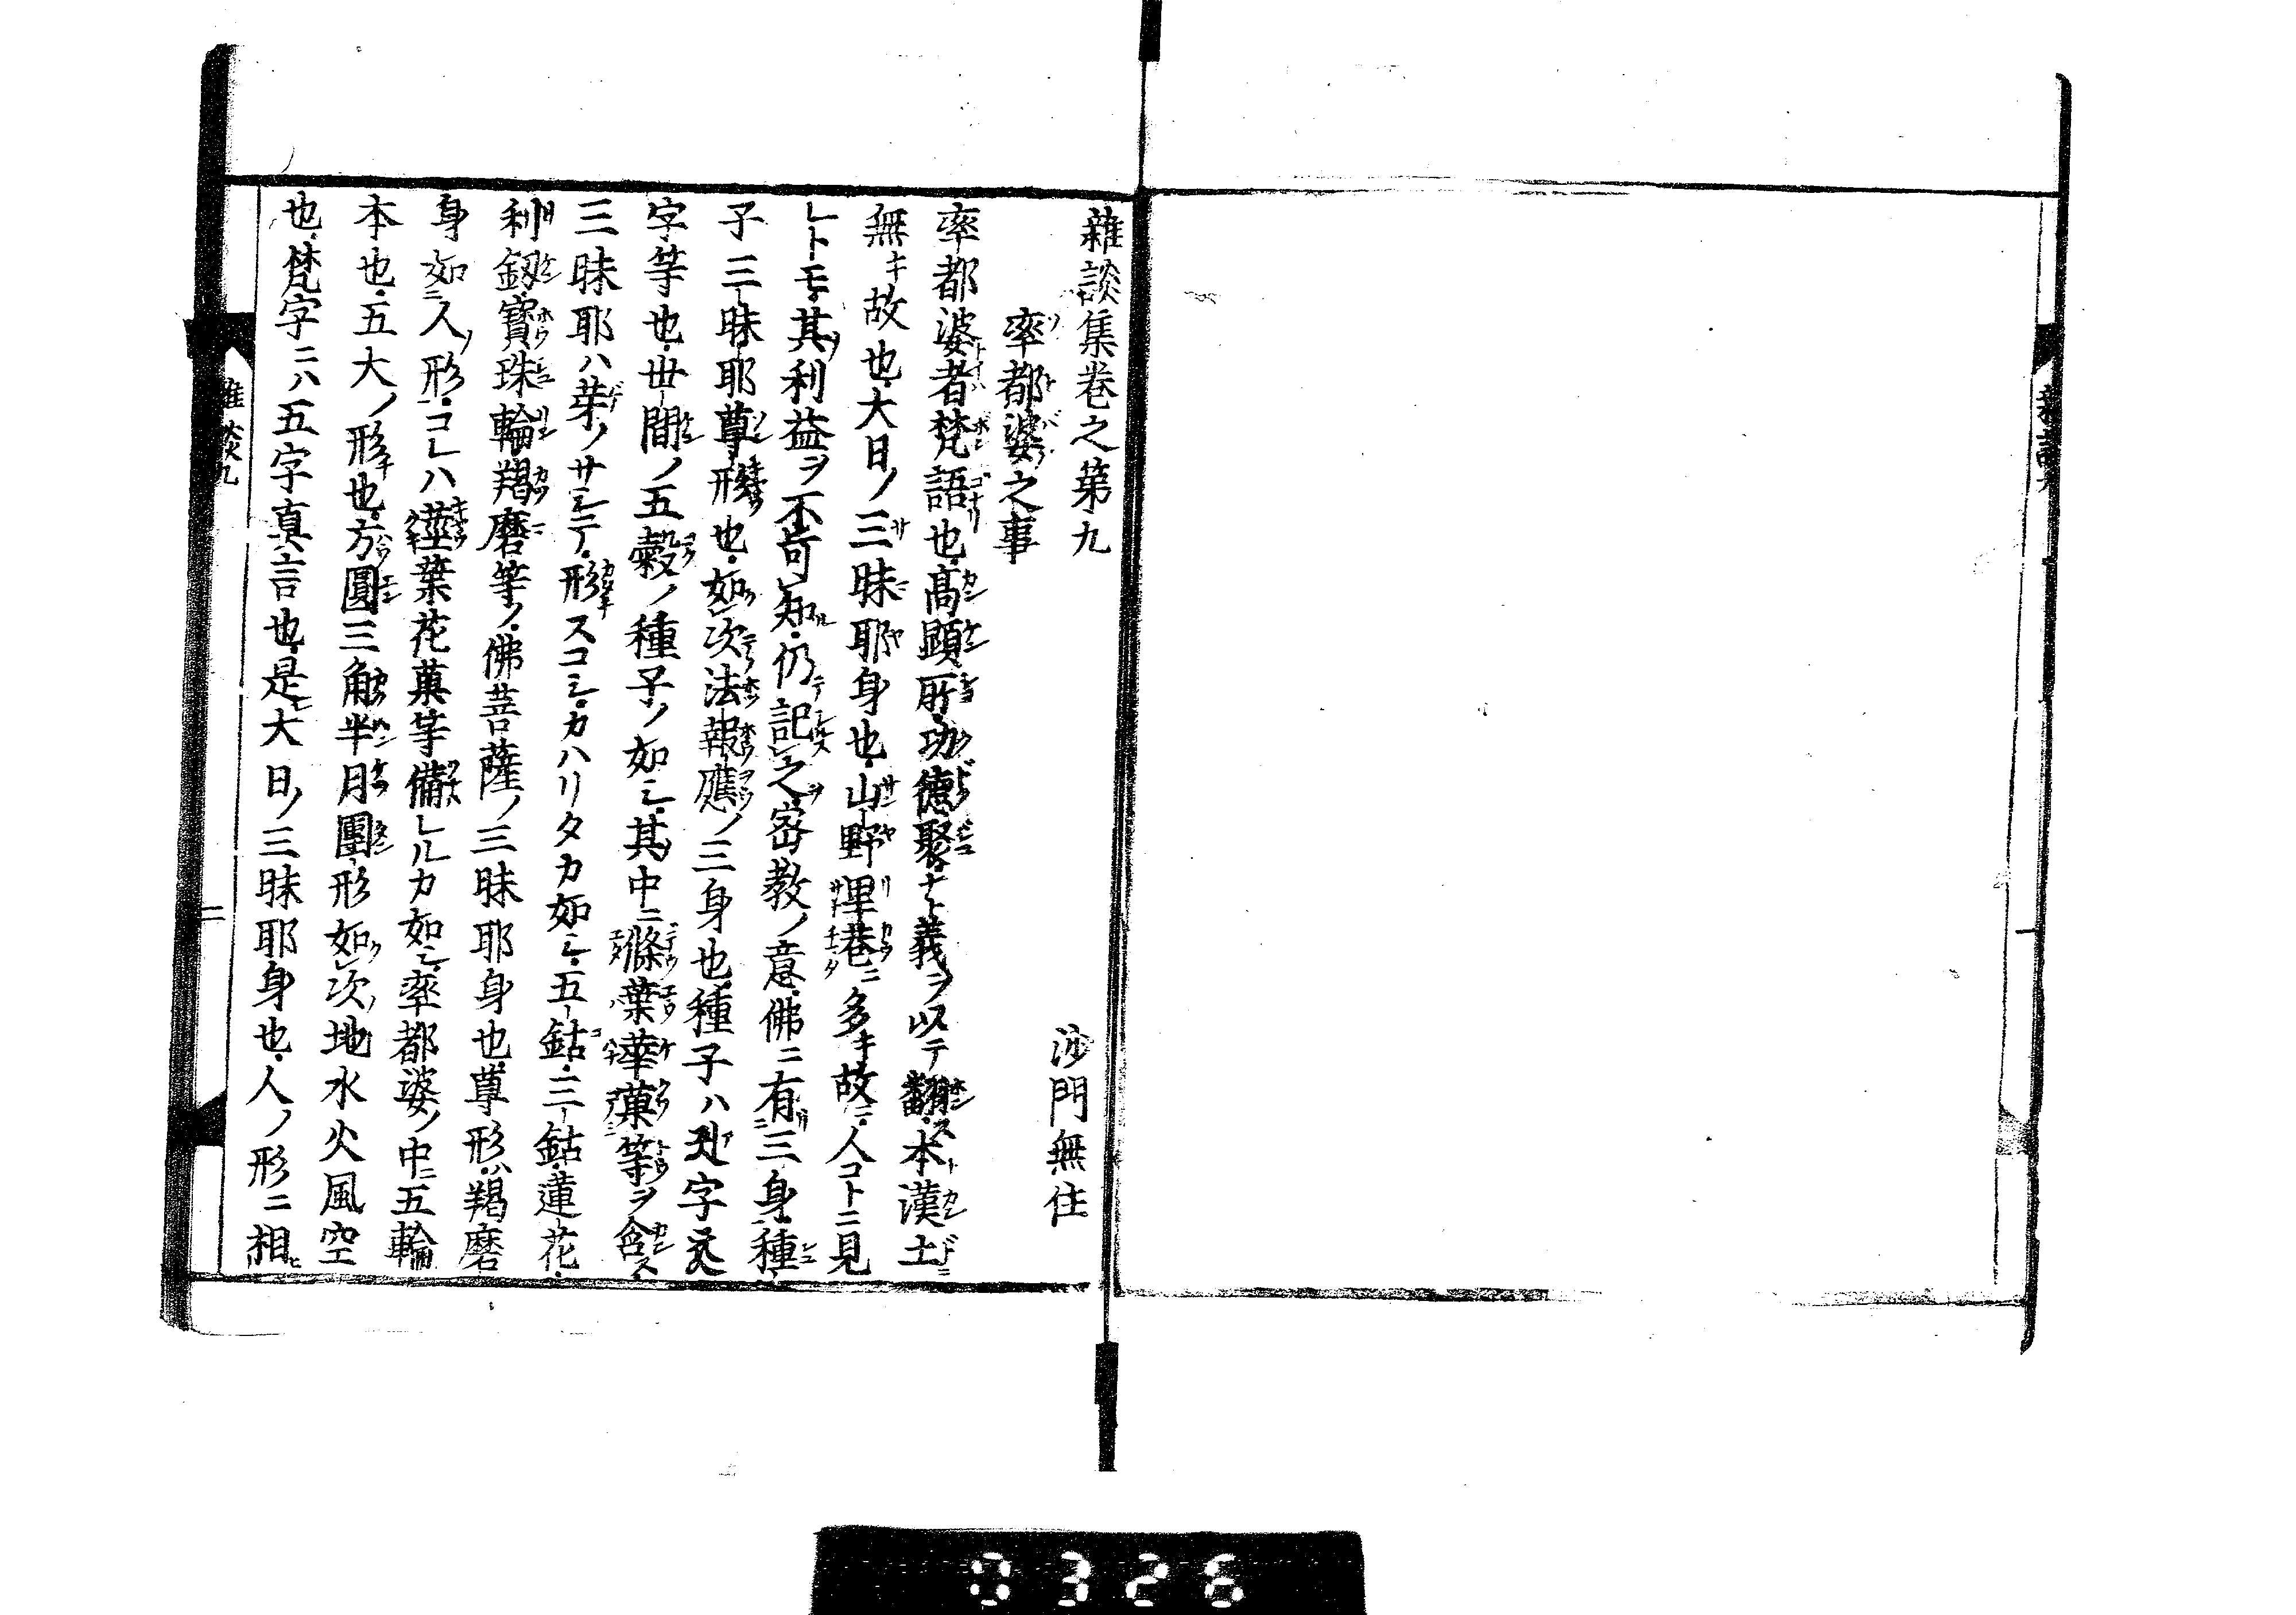 雜談集卷之第九
沙門無住
率都婆之事
率都婆者梵語也高顯所功德聚ナト義ヲ以テ翻ス本漢土ニ
無キ故也大日ノ三昧耶身也山野里巷ニ多キ故ニ人コトニ見
レトモ其利益ヲ不可知仍記之密教ノ意佛ニ有三身種
子三昧耶尊形也如次法報應ノ三身也種子ハ
字等也世間ノ五穀ノ種子ノ如シ其中ニ條葉華菓等ヲ含ス
三昧耶ハ芽ノサシテ形スコシカハリタカ如シ五鈷三鈷蓮花
利劔寶珠輪羯磨等ノ佛菩薩ノ三昧耶身也尊形ハ羯磨
身如人形コレハ莖葉花菓等備レルカ如シ率都婆ノ中ニ五輪
本也五大ノ形也方圓三角半月團形如次地水火風空
也梵字ニハ五字真言也是大日ノ三昧耶身也人ノ形ニ相
雜談九
二
0326